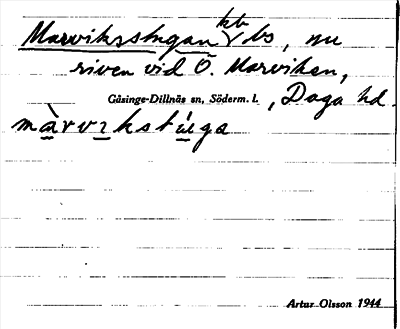 Marviksstugan kb
ls, nu
riven vid Ö. Marviken,
Gåsinge-Dillnäs sn, Söderm. l., Daga hd.
Artur Olsson 1944